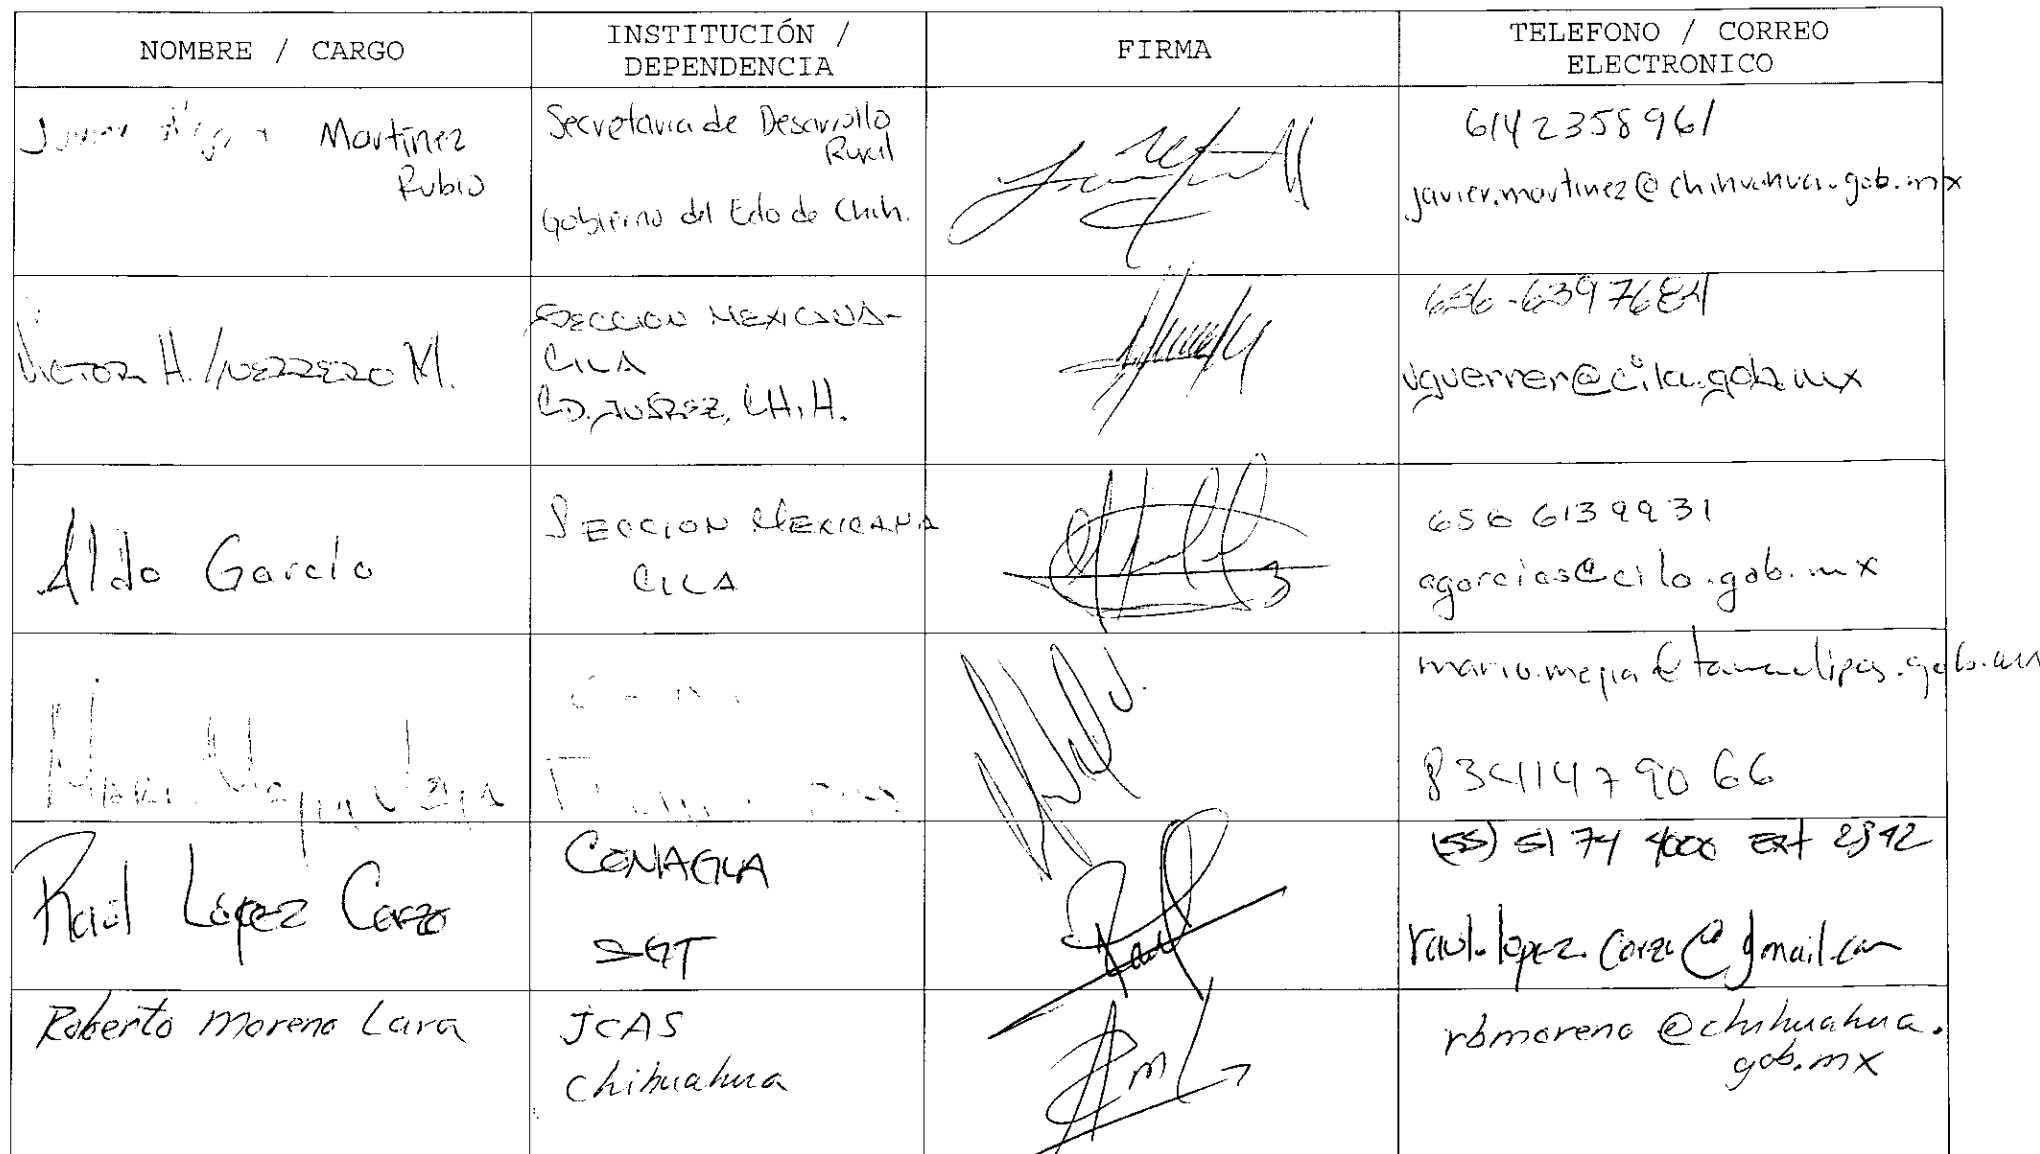 NOMBRE / CARGO
INSTITUCIÓN /
DEPENDENCIA
FIRMA
TELEFONO / CORREO
ELECTRONICO
Martínez
Rubio
Secretaria de Desarrollo
Rural
Gobierno del Edo de Chih.
6142358961
javier.martinez@chihuahua.gob.mx
VICTOR H. GUERRERO M.
SECCION MEXICANA-
CILA
CD. JUÁREZ, CHIH.
vguerrer@cila.gob.mx
Aldo García
SECCION MEXICANA
CILA
656 6139931
agarcias@cila.gob.mx
Mario Mejia
mario.mejia@tamaulipas.gob.mx
8341147 90 66
Raúl López Corzo
CONAGUA
SGT
(55) 51 74 4000 Ext
raul.lopez.corzo@gmail.com
Raul
Roberto Moreno Lara
JCAS
Chihuahua
rbmoreno@chihuahua.
gob.mx